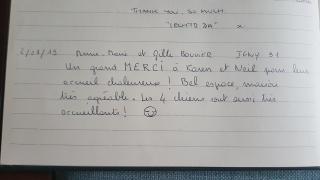 THANK YOU SO MUCH
x
Anne-Marie et Gille Bouvier IGNY 91
Un grand MERCI à Karen et Neil pour leur
accueil chaleureux ! Bel espace, maison
très agréable. Les 4 chiens sont aussi très
accueillants !